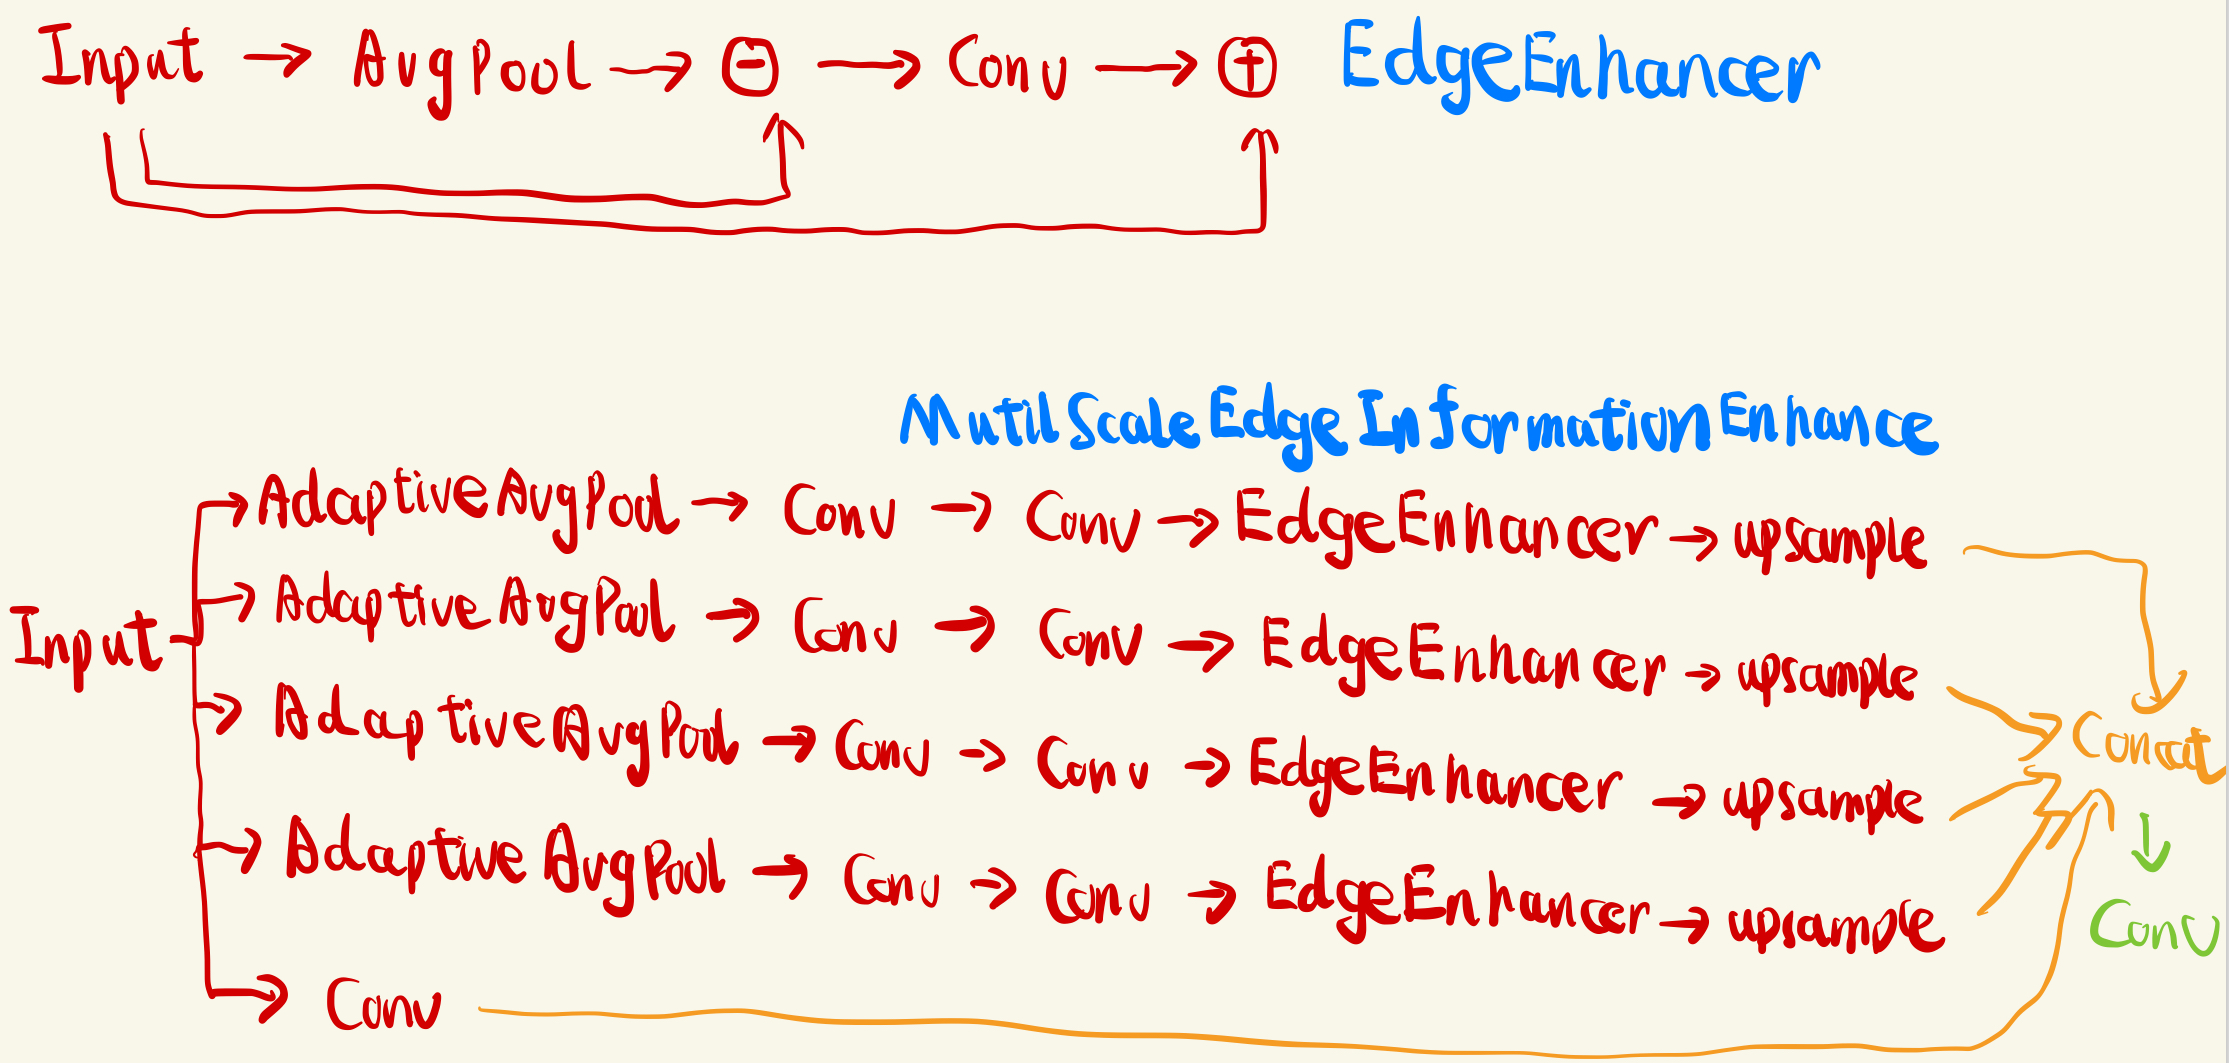 Input → AvgPool → ⊖ → Conv → ⊕ EdgeEnhancer
MutilScaleEdgeInformationEnhance
AdaptiveAvgPool → Conv → Conv → EdgeEnhancer → upsample
AdaptiveAvgPool → Conv → Conv → EdgeEnhancer → upsample
Input
AdaptiveAvgPool → Conv → Conv → EdgeEnhancer → upsample
Concat
AdaptiveAvgPool → Conv → Conv → EdgeEnhancer → upsample
Conv
Conv